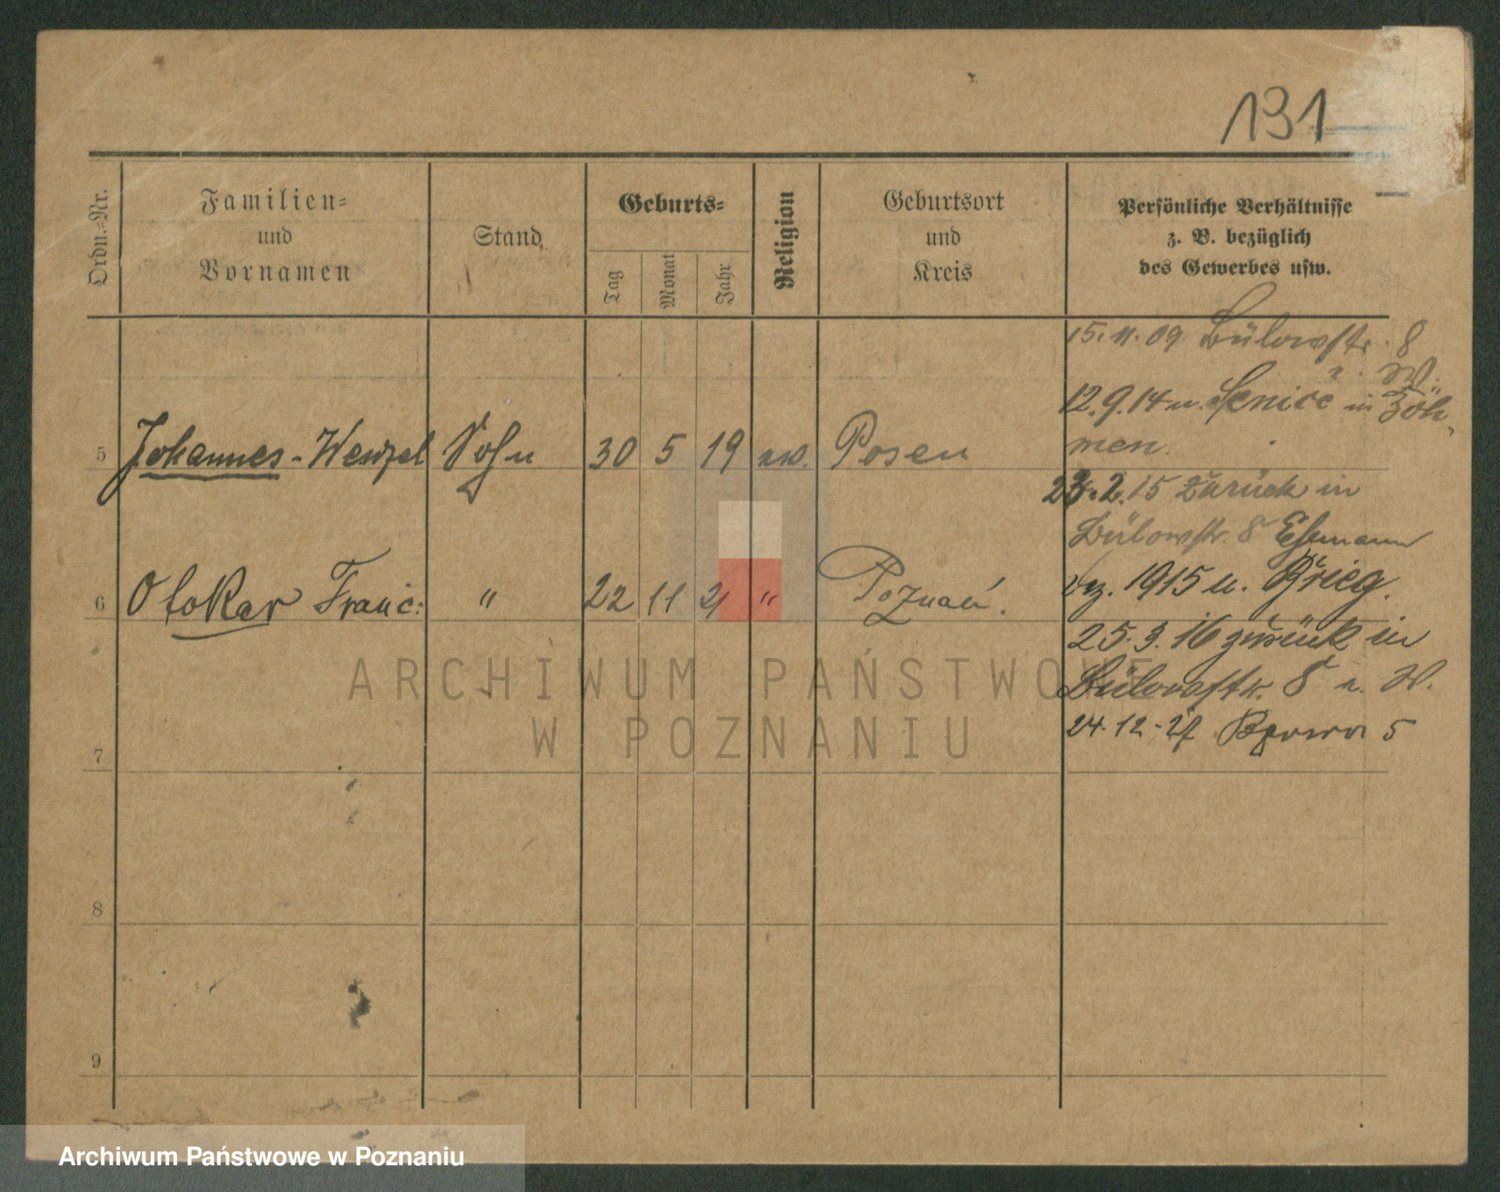 131
Ordn.-Nr.
Familien=
und
Vornamen
Stand
Geburts=
Tag
Monat
Jahr
Religion
Geburtsort
und
Kreis
Persönliche Verhältnisse
z. B. bezüglich
des Gewerbes usw.
15.11.09 Bülowstr. 8
u. W.
12.9.14 n. Senice in Böh-
men.
5 Johannes-Wenzel Sohn 30 5 19 ew. Posen
23.2.15 zurück in
Bülowstr. 8 Ehemann
6 Otokar Franc: " 22 11 21 " Poznań.
vrz. 1915 n. Brieg.
25.3.16 zurück in
Bülowstr. 8 u. W.
24.12-27 5
7
8
9
ARCHIWUM PAŃSTWOWE
W POZNANIU
Archiwum Państwowe w Poznaniu